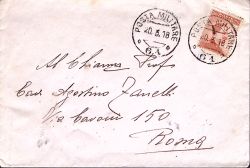 POSTA MILITARE
20.5.18
61
POSTA MILITARE
20.5.18
61
Al Chiarmo Prof
Cav Agostino Zanelli
Via Cavour 150
Roma